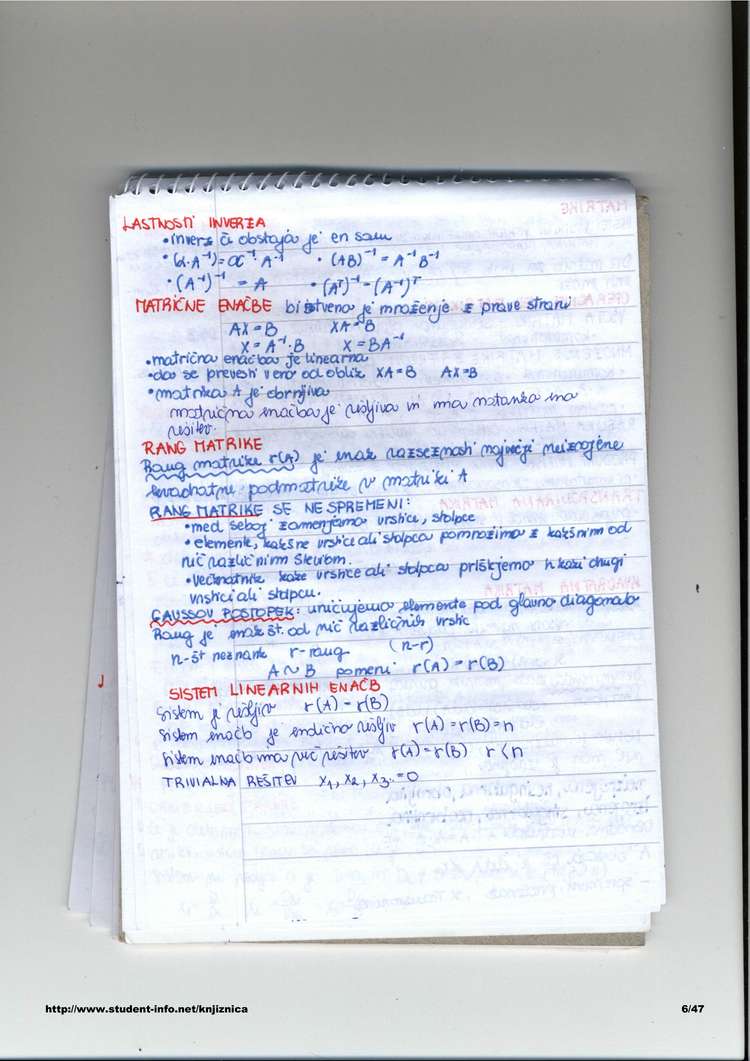 LASTNOSTI INVERZA
• inverz če obstaja je en sam
• (α·A⁻¹) = α⁻¹·A⁻¹ • (AB)⁻¹ = A⁻¹B⁻¹
• (A⁻¹)⁻¹ = A • (Aᵀ)⁻¹ = (A⁻¹)ᵀ
MATRIČNE ENAČBE bistveno je množenje z prave strani
AX = B XA = B
X = A⁻¹·B X = BA⁻¹
• matrična enačba je linearna
• da se prevesti v eno od oblik XA = B AX = B
• matrika A je obrnljiva
matrična enačba je rešljiva in ima natanko eno
rešitev.
RANG MATRIKE
Rang matrike r(A) je enak razsežnosti največje neizrojene
kvadratne podmatrike v matriki A
RANG MATRIKE SE NE SPREMENI:
• med seboj zamenjamo vrstice, stolpce
• elemente, kakšne vrstice ali stolpca pomnožimo z kakšnim od
nič različnim številom.
• večkratnik kake vrstice ali stolpca prištejemo h kaki drugi
vrstici ali stolpcu.
GAUSSOV POSTOPEK: uničujemo elemente pod glavno diagonalo
Rang je enak št. od nič različnih vrstic
n-št neznank r-rang (n-r)
A ~ B pomeni r(A) = r(B)
SISTEM LINEARNIH ENAČB
Sistem je rešljiv r(A) = r(B)
Sistem enačb je enolično rešljiv r(A) = r(B) = n
Sistem enačb ima več rešitev r(A) = r(B) r < n
TRIVIALNA REŠITEV x₁, x₂, x₃.. = 0
http://www.student-info.net/knjiznica 6/47